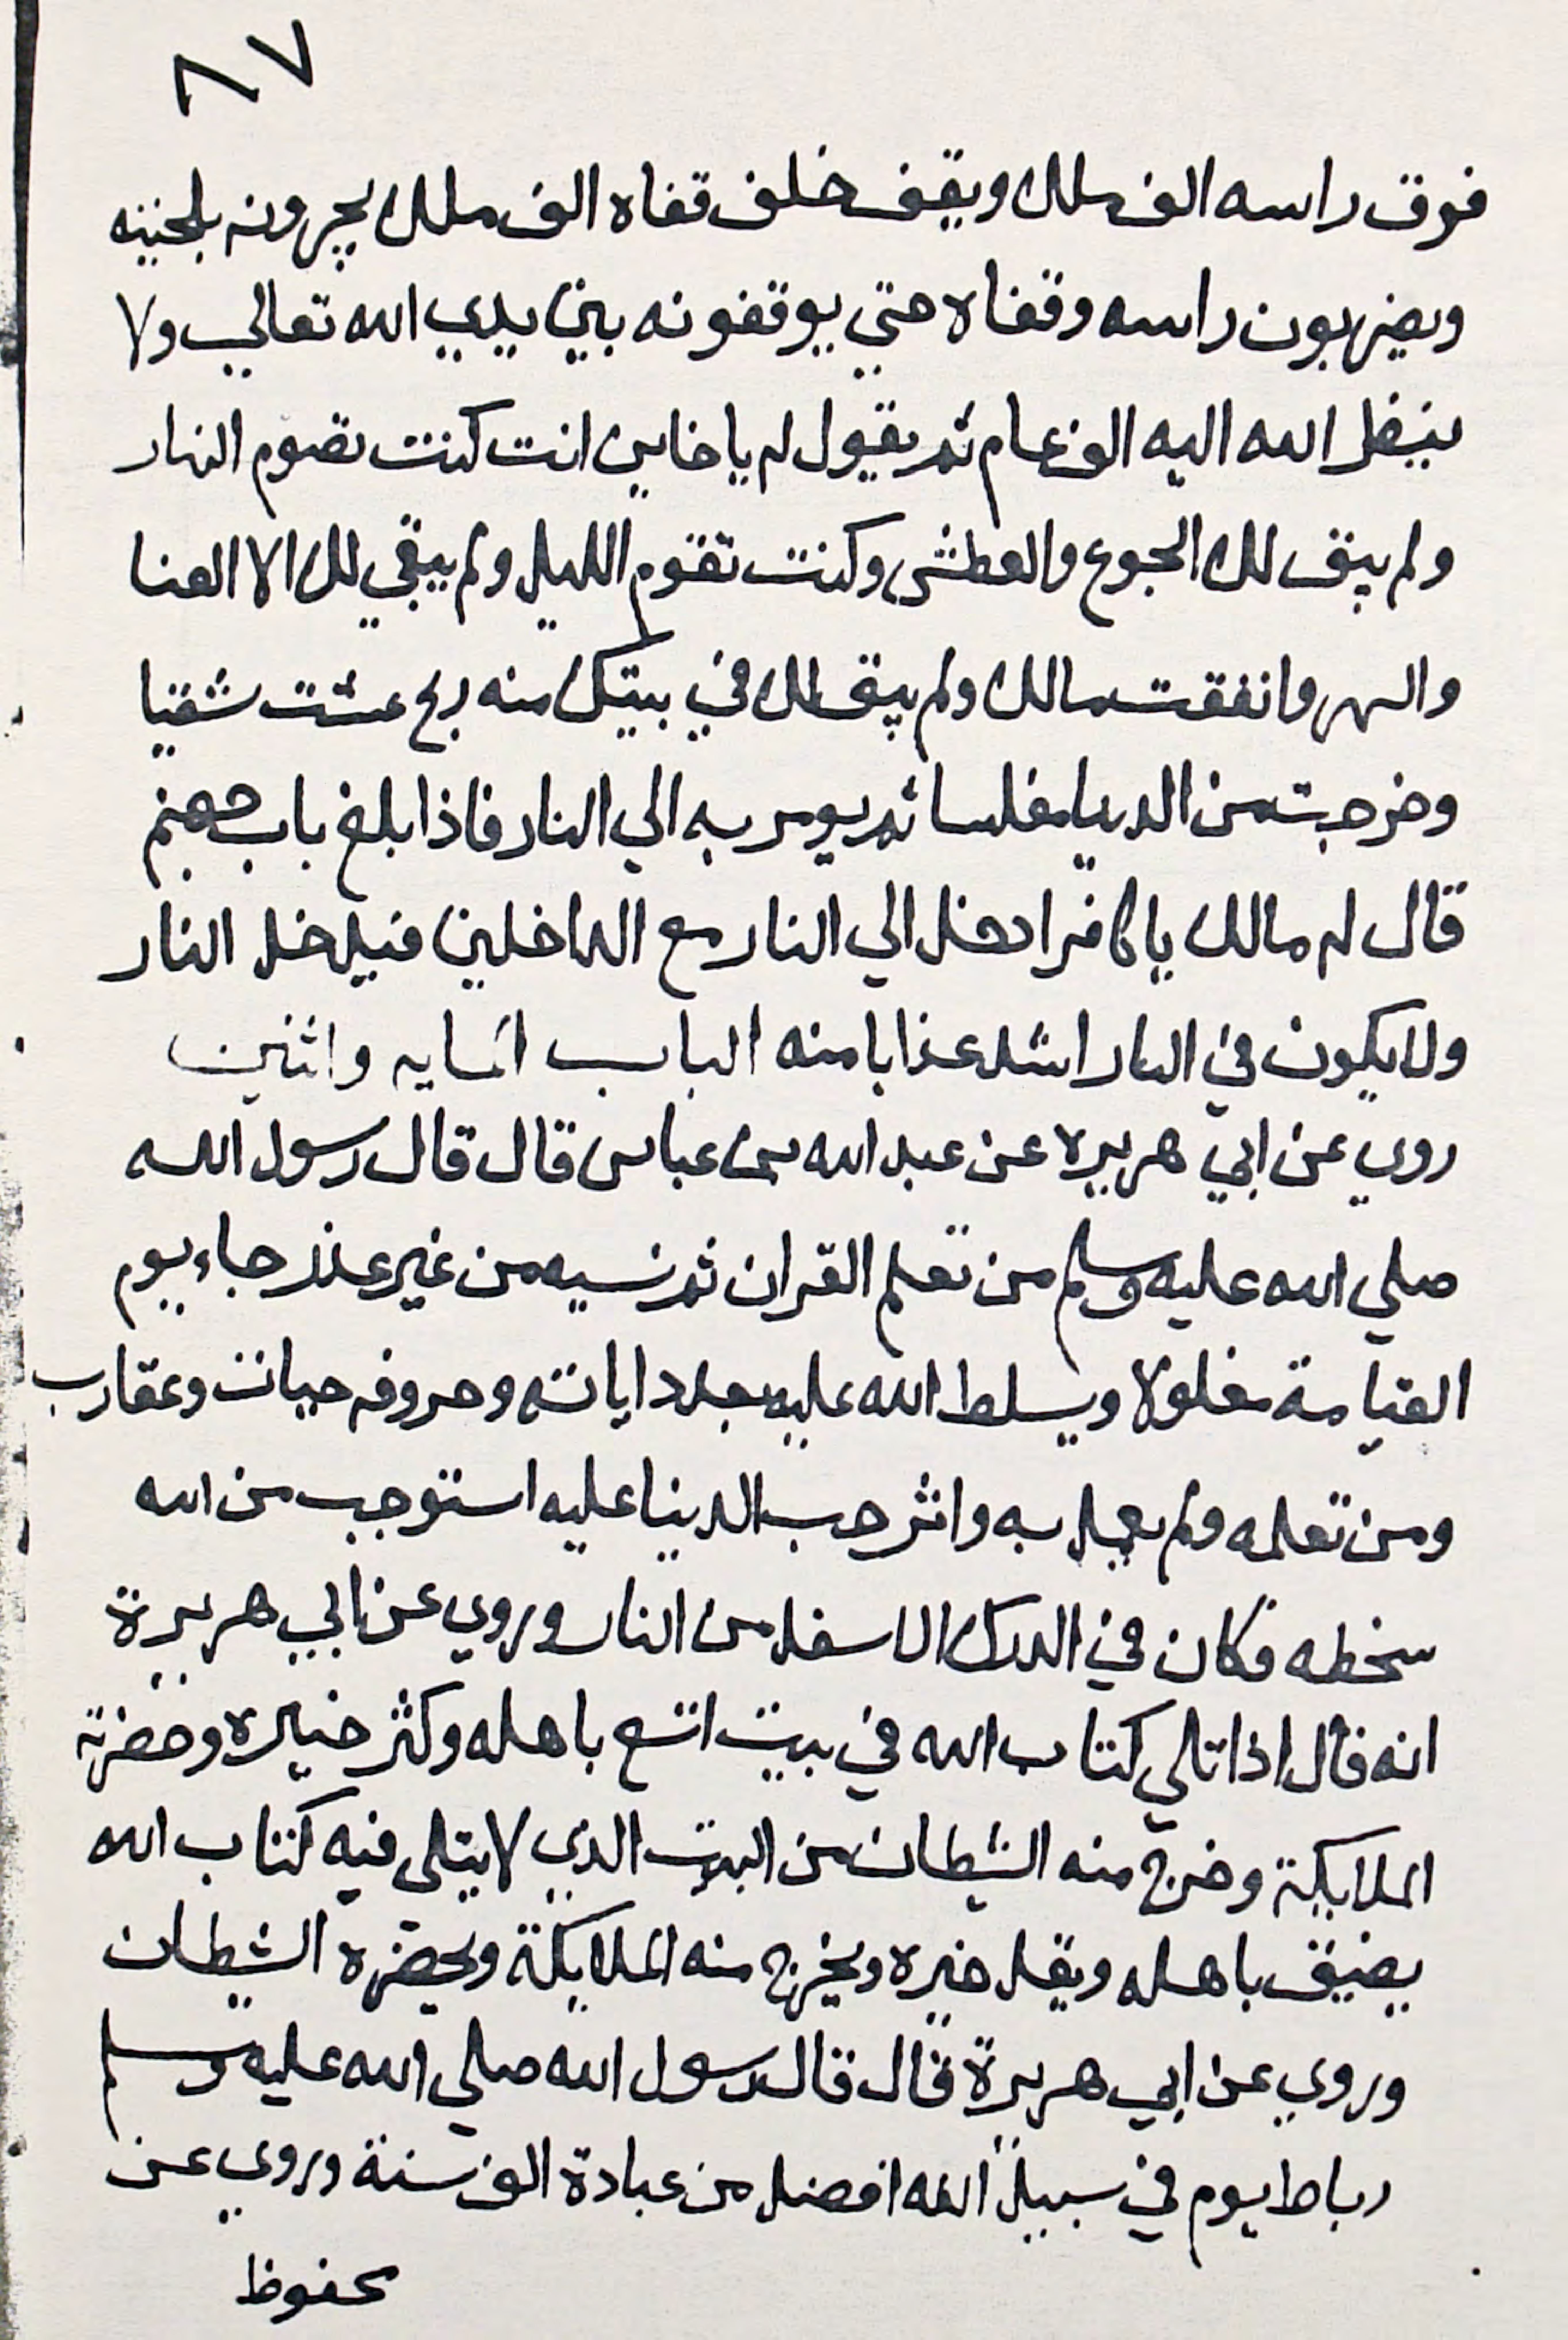 ٨٧
فوق راسه الف ملك ويقف خلف قفاه الف ملك يجرونه بلحيته
ويضربون راسه وقفاه حتي يوقفونه بين يدي الله تعالي ولا
ينظر الله اليه الف عام ثم يقول له يا خاين انت كنت تصوم النهار
ولم يبق لك الجوع والعطش وكنت تقوم الليل ولم يبقي لك الا العنا
والسهر وانفقت مالك ولم يبق لك في بيتك منه ربح عشت شقيا
وخرجت من الدنيا مفلسا ثم يومر به الي النار فاذا بلغ باب جهنم
قال له مالك يا كافر ادخل الي النار مع الداخلين فيدخل النار
ولا يكون في النار اشد عذابا منه الباب المايه واثنين
روي عن ابي هريره عن عبد الله بن عباس قال قال رسول الله
صلي الله عليه وسلم من تعلم القران ثم نسيه من غير عذر جاء يوم
القيامة مغلولا ويسلط الله عليه بعدد اياته وحروفه حيات وعقارب
ومن تعلمه ولم يعمل به واثر حب الدنيا عليه استوجب من الله
سخطه فكان في الدرك الاسفل من النار وروي عن ابي هريرة
انه قال اذا تلي كتاب الله في بيت اتسع باهله وكثر خيره وحضرته
الملايكة وخرج منه الشيطان من البيت الذي لا يتلى فيه كتاب الله
يضيق باهله ويقل خيره ويخرج منه الملايكة ويحضره الشيطان
وروي عن ابي هريرة قال قال رسول الله صلي الله عليه وسلم
رباط يوم في سبيل الله افضل من عبادة الف سنة وروي عن
محفوظ